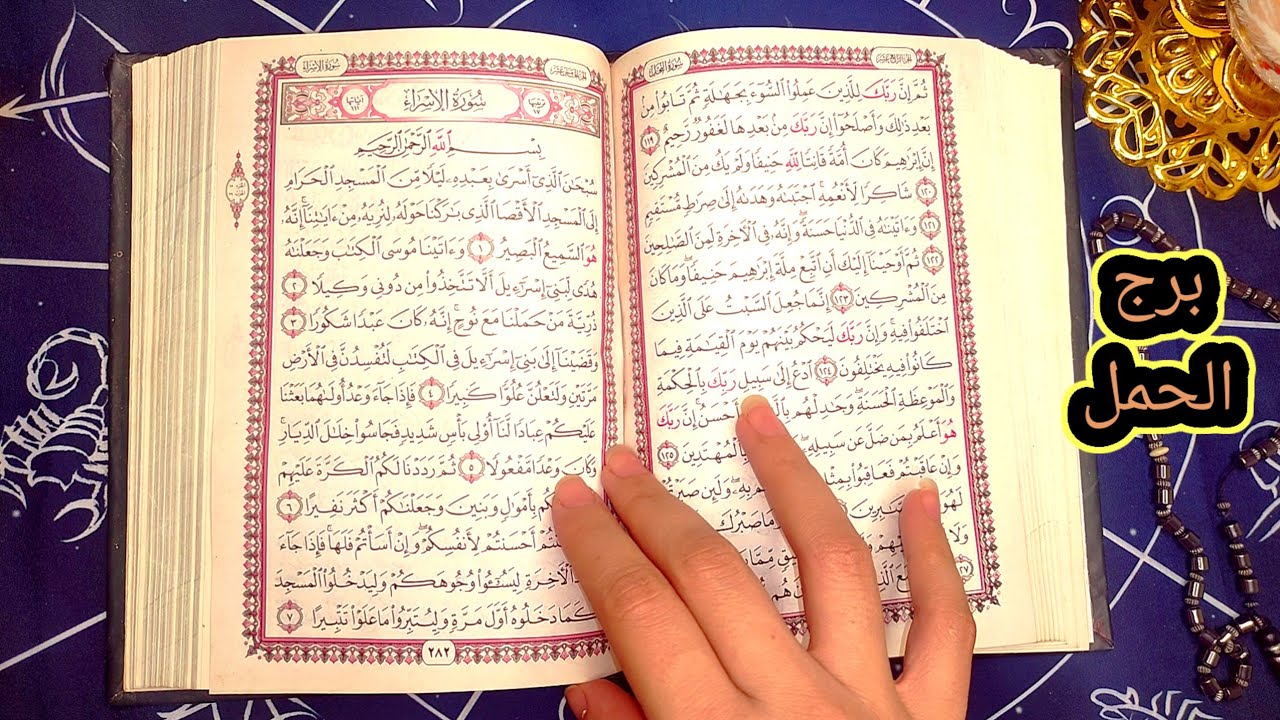 سُورَةُ النَّحْلِ
ثُمَّ إِنَّ رَبَّكَ لِلَّذِينَ عَمِلُوا۟ ٱلسُّوٓءَ بِجَهَٰلَةٍ ثُمَّ تَابُوا۟ مِنۢ
بَعْدِ ذَٰلِكَ وَأَصْلَحُوٓا۟ إِنَّ رَبَّكَ مِنۢ بَعْدِهَا لَغَفُورٌ رَّحِيمٌ ١١٩
إِنَّ إِبْرَٰهِيمَ كَانَ أُمَّةً قَانِتًا لِّلَّهِ حَنِيفًا وَلَمْ يَكُ مِنَ ٱلْمُشْرِكِينَ
١٢٠ شَاكِرًا لِّأَنْعُمِهِ ٱجْتَبَىٰهُ وَهَدَىٰهُ إِلَىٰ صِرَٰطٍ مُّسْتَقِيمٍ
١٢١ وَءَاتَيْنَٰهُ فِى ٱلدُّنْيَا حَسَنَةً وَإِنَّهُۥ فِى ٱلْءَاخِرَةِ لَمِنَ ٱلصَّٰلِحِينَ
١٢٢ ثُمَّ أَوْحَيْنَآ إِلَيْكَ أَنِ ٱتَّبِعْ مِلَّةَ إِبْرَٰهِيمَ حَنِيفًا وَمَا كَانَ
مِنَ ٱلْمُشْرِكِينَ ١٢٣ إِنَّمَا جُعِلَ ٱلسَّبْتُ عَلَى ٱلَّذِينَ
ٱخْتَلَفُوا۟ فِيهِ وَإِنَّ رَبَّكَ لَيَحْكُمُ بَيْنَهُمْ يَوْمَ ٱلْقِيَٰمَةِ فِيمَا
كَانُوا۟ فِيهِ يَخْتَلِفُونَ ١٢٤ ٱدْعُ إِلَىٰ سَبِيلِ رَبِّكَ بِٱلْحِكْمَةِ
وَٱلْمَوْعِظَةِ ٱلْحَسَنَةِ وَجَٰدِلْهُم أَحْسَنُ إِنَّ رَبَّكَ
هُوَ أَعْلَمُ بِمَن ضَلَّ عَن سَبِيلِهِۦ ٱلْمُهْتَدِينَ ١٢٥
وَإِنْ عَاقَبْتُمْ فَعَاقِبُوا۟ بِهِۦ وَلَئِن صَبَرْتُمْ
وَمَا صَبْرُكَ
سُورَةُ الإِسْرَاءِ
سُورَةُ الإِسْرَاءِ
بِسْمِ ٱللَّهِ ٱلرَّحْمَٰنِ ٱلرَّحِيمِ
سُبْحَٰنَ ٱلَّذِىٓ أَسْرَىٰ بِعَبْدِهِۦ لَيْلًا مِّنَ ٱلْمَسْجِدِ ٱلْحَرَامِ
إِلَى ٱلْمَسْجِدِ ٱلْأَقْصَا ٱلَّذِى بَٰرَكْنَا حَوْلَهُۥ لِنُرِيَهُۥ مِنْ ءَايَٰتِنَآ إِنَّهُۥ
هُوَ ٱلسَّمِيعُ ٱلْبَصِيرُ ١ وَءَاتَيْنَا مُوسَى ٱلْكِتَٰبَ وَجَعَلْنَٰهُ
هُدًى لِّبَنِىٓ إِسْرَٰٓءِيلَ أَلَّا تَتَّخِذُوا۟ مِن دُونِى وَكِيلًا ٢
ذُرِّيَّةَ مَنْ حَمَلْنَا مَعَ نُوحٍ إِنَّهُۥ كَانَ عَبْدًا شَكُورًا ٣
وَقَضَيْنَآ إِلَىٰ بَنِىٓ إِسْرَٰٓءِيلَ فِى ٱلْكِتَٰبِ لَتُفْسِدُنَّ فِى ٱلْأَرْضِ
مَرَّتَيْنِ وَلَتَعْلُنَّ عُلُوًّا كَبِيرًا ٤ فَإِذَا جَآءَ وَعْدُ أُولَىٰهُمَا بَعَثْنَا
عَلَيْكُمْ عِبَادًا لَّنَآ أُو۟لِى بَأْسٍ شَدِيدٍ فَجَاسُوا۟ خِلَٰلَ ٱلدِّيَارِ
وَكَانَ وَعْدًا مَّفْعُولًا ٥ ثُمَّ رَدَدْنَا لَكُمُ ٱلْكَرَّةَ عَلَيْهِمْ
بِأَمْوَٰلٍ وَبَنِينَ وَجَعَلْنَٰكُمْ أَكْثَرَ نَفِيرًا ٦
أَحْسَنتُمْ لِأَنفُسِكُمْ وَإِنْ أَسَأْتُمْ فَلَهَا فَإِذَا جَآءَ
ٱلْءَاخِرَةِ لِيَسُۥٓـُٔوا۟ وُجُوهَكُمْ وَلِيَدْخُلُوا۟ ٱلْمَسْجِدَ
كَمَا دَخَلُوهُ أَوَّلَ مَرَّةٍ وَلِيُتَبِّرُوا۟ مَا عَلَوْا۟ تَتْبِيرًا ٧
٢٨٢
برج
الحمل